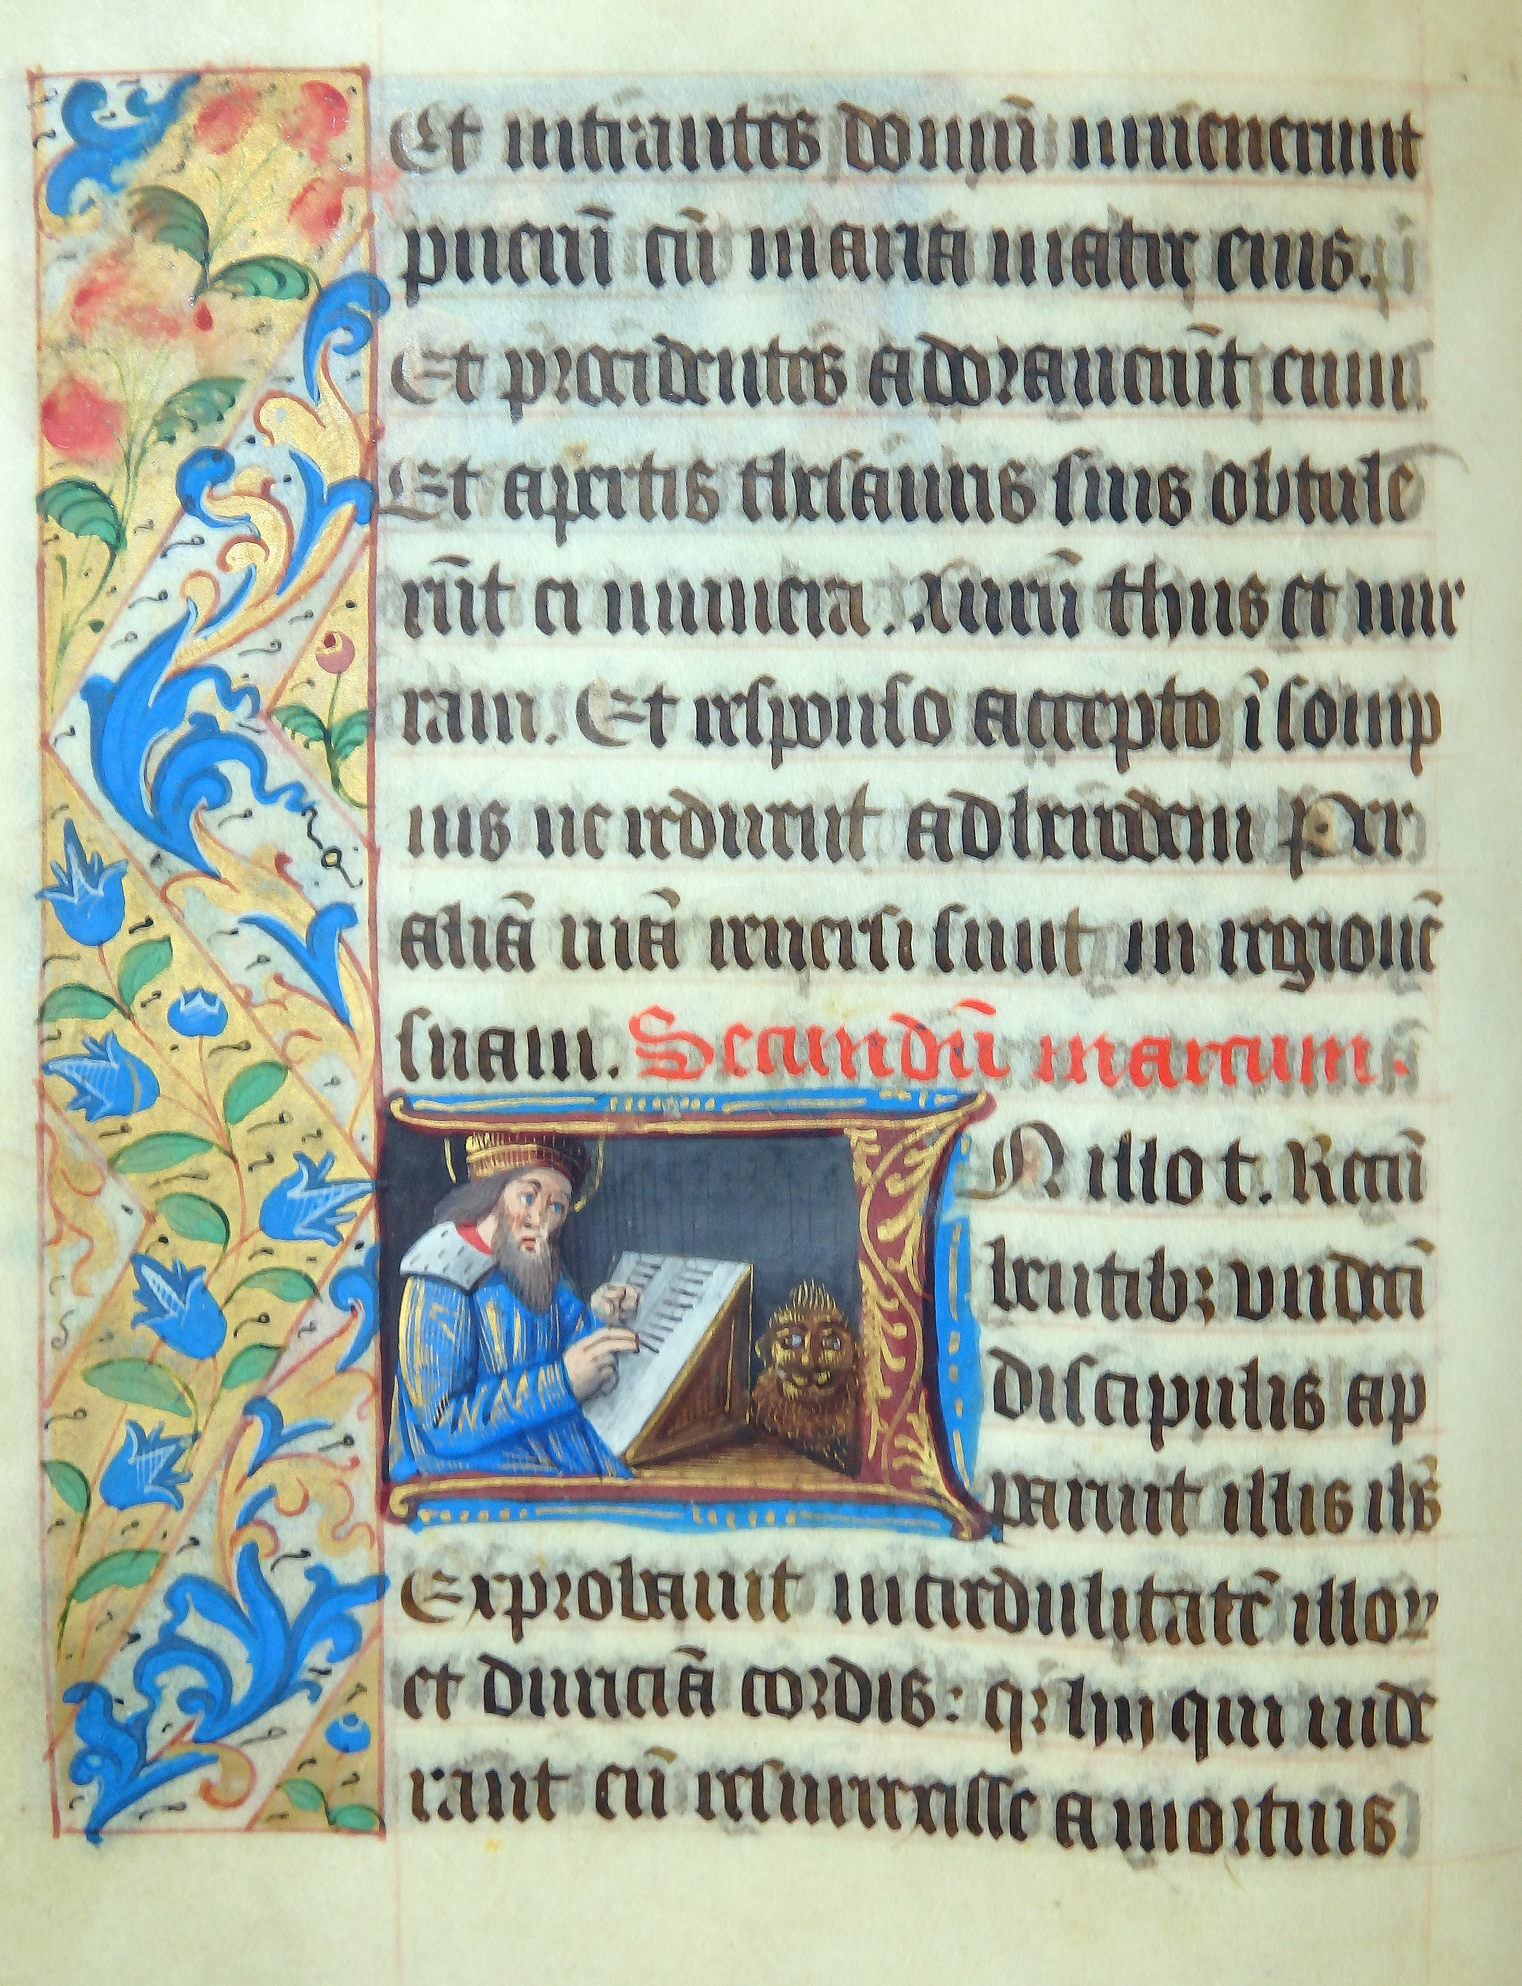 Et intrantes domū inuenerunt
puerū cū maria matre eius.
Et procidentes adorauerūt eum.
Et apertis thesauris suis obtule
rūt ei munera. Aurū thus et mir
ram. Et responso accepto ī somp
nis ne redirent ad herodem Per
aliā uiā reuersi sunt in regionē
suam. Secundū marcum.
N illo t. Recū
bentibꝫ undeci
discipulis ap
paruit illis ihs
Exprobauit incredulitatē illoꝝ
et duriciā cordis: qꝛ hij qui uide
rant eū resurrexisse a mortuis